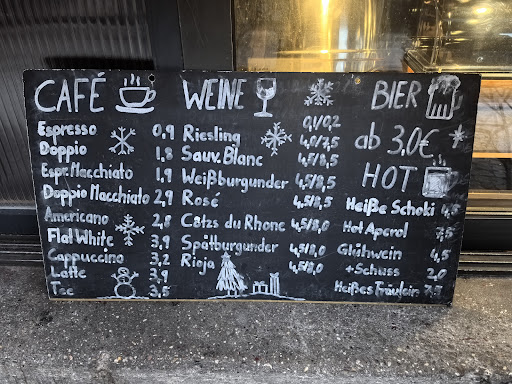 CAFÉ
Espresso 0,9
Doppio 1,8
Espr. Macchiato 1,9
Doppio Macchiato 2,9
Americano 2,8
Flat White 3,9
Cappuccino 3,2
Latte 3,9
Tee 3,5
WEINE
0,1/0,2
Riesling 4,0/7,5
Sauv. Blanc 4,5/8,5
Weißburgunder 4,5/8,5
Rosé 4,5/8,5
Côtes du Rhone 4,5/8,0
Spätburgunder 4,5/8,0
Rioja 4,5/8,0
BIER
ab 3,0€
HOT
Heiße Schoki 4,5
Hot Aperol 7,5
Glühwein 4,5
+ Schuss 2,0
Heißes Fräulein